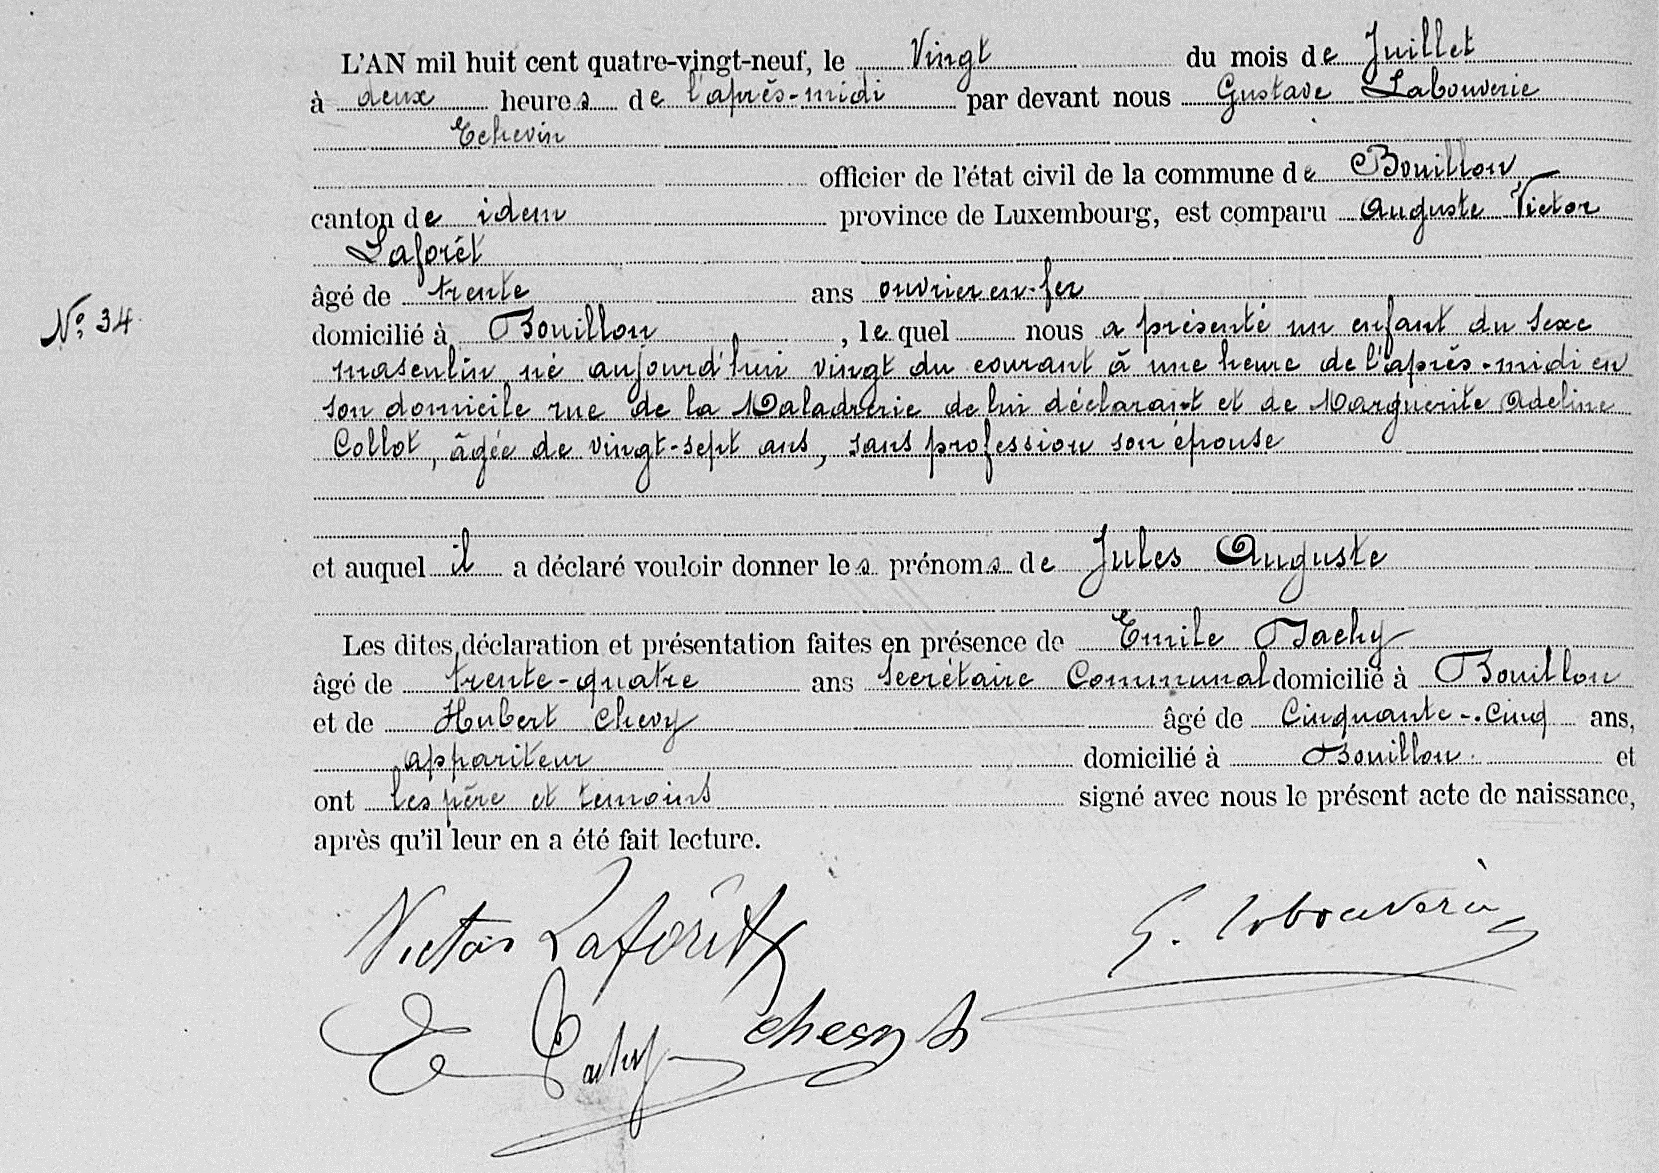 L'AN mil huit cent quatre-vingt-neuf, le Vingt du mois de Juillet
à deux heures de l'après-midi par devant nous Gustave Labouverie
Echevin
officier de l'état civil de la commune de Bouillon
canton de idem province de Luxembourg, est comparu Auguste Victor
Laforêt
âgé de trente ans ouvrier en fer
N° 34
domicilié à Bouillon, le quel nous a présenté un enfant du sexe
masculin né aujourd'hui vingt du courant à une heure de l'après-midi en
son domicile rue de la Maladrerie de lui déclarant et de Marguerite Adeline
Collot, âgée de vingt-sept ans, sans profession son épouse
et auquel il a déclaré vouloir donner les prénoms de Jules Auguste
Les dites déclaration et présentation faites en présence de Emile
âgé de trente-quatre ans Secrétaire Communal domicilié à Bouillon
et de Hubert Chevy âgé de Cinquante-Cinq ans,
appariteur domicilié à Bouillon et
ont les père et témoins signé avec nous le présent acte de naissance,
après qu'il leur en a été fait lecture.
Victor Laforêt G. Labouverie